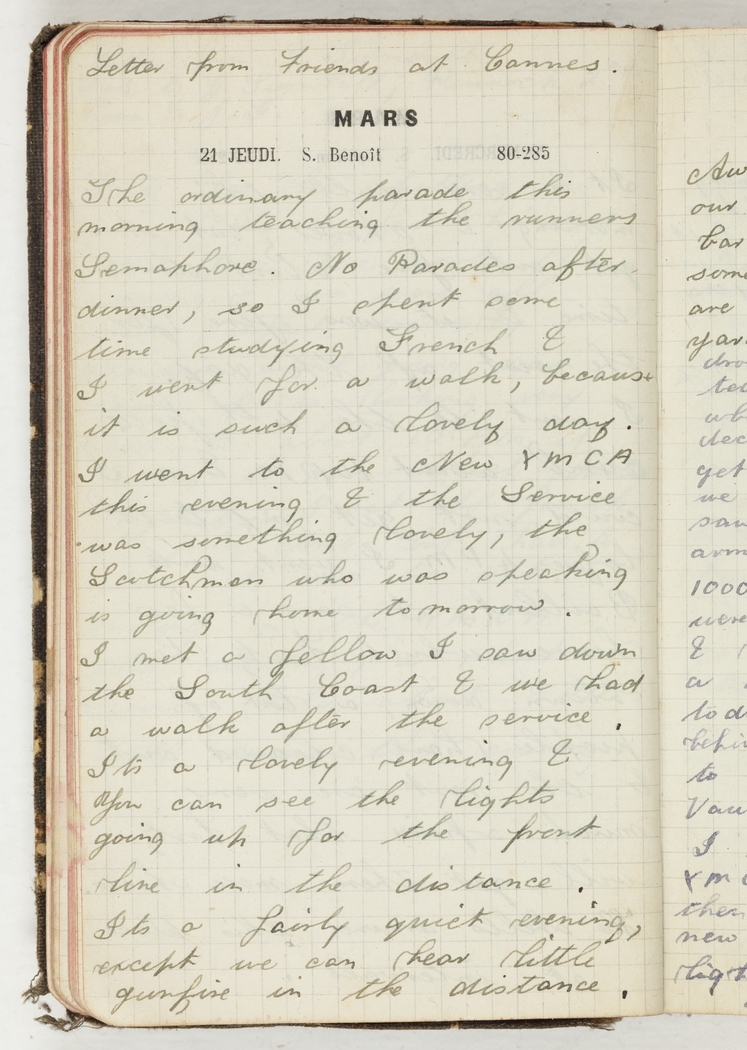 Letter from Friends at Cannes.
MARS
21 JEUDI. S. Benoît 80-285
The ordinary parade this
morning teaching the runners
Semaphore. No Parades after
dinner, so I spent some
time studying French &
I went for a walk, because
it is such a lovely day.
I went to the New YMCA
this evening & the Service
was something lovely, the
Scotchman who was speaking
is going home tomorrow.
I met a fellow I saw down
the South Coast & we had
a walk after the service.
Its a lovely evening &
You can see the lights
going up for the front
line in the distance.
Its a fairly quiet evening,
except we can hear little
gunfire in the distance.
our
are
we
1000
&
a
to
I
then
new